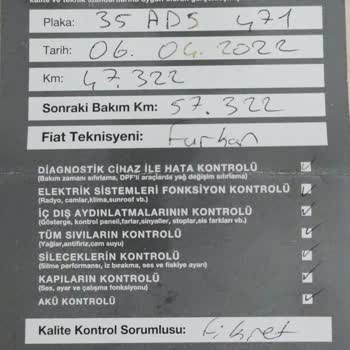 kalite ve teknik standartlarına uygun olarak
Plaka: 35 ADS 471
Tarih: 06. 04. 2022
Km: 47.322
Sonraki Bakım Km: 57.322
Fiat Teknisyeni: Furkan
DİAGNOSTİK CİHAZ İLE HATA KONTROLÜ
(Bakım zamanı sıfırlama, DPF'li araçlarda yağ değişim sıfırlama)
ELEKTRİK SİSTEMLERİ FONKSİYON KONTROLÜ
(Radyo, camlar,klima,sunroof vb.)
İÇ DIŞ AYDINLATMALARININ KONTROLÜ
(Gösterge, kontrol paneli, farlar,sinyaller, stoplar,sis farkları vb.)
TÜM SIVILARIN KONTROLÜ
(Yağlar,antifiriz,cam suyu)
SİLECEKLERİN KONTROLÜ
(Silme performansı, iz bırakma, ses ve fıskiye ayarı)
KAPILARIN KONTROLÜ
(Ses, ayar ve çalışma fonksiyonu)
AKÜ KONTROLÜ
Kalite Kontrol Sorumlusu: Fikret